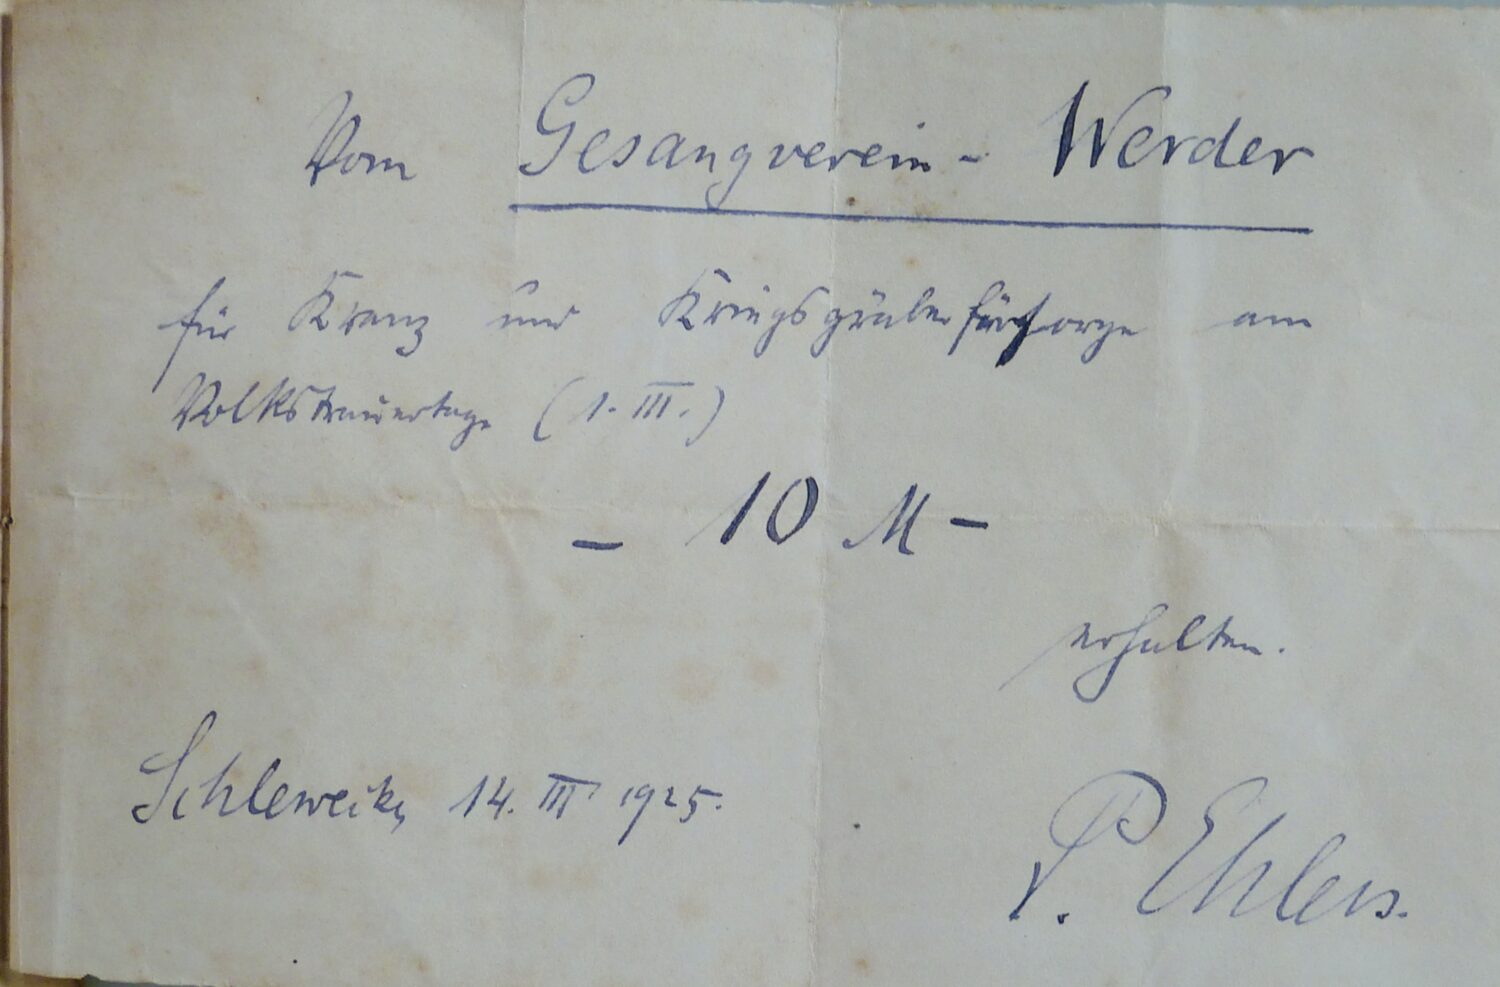 Vom Gesangverein - Werder
für Kranz und Kriegsgräberfürsorge am
Volkstrauertage (1. III.)
- 10 M -
erhalten.
Schlewecke, 14. III 1925.
P. Ehlers.